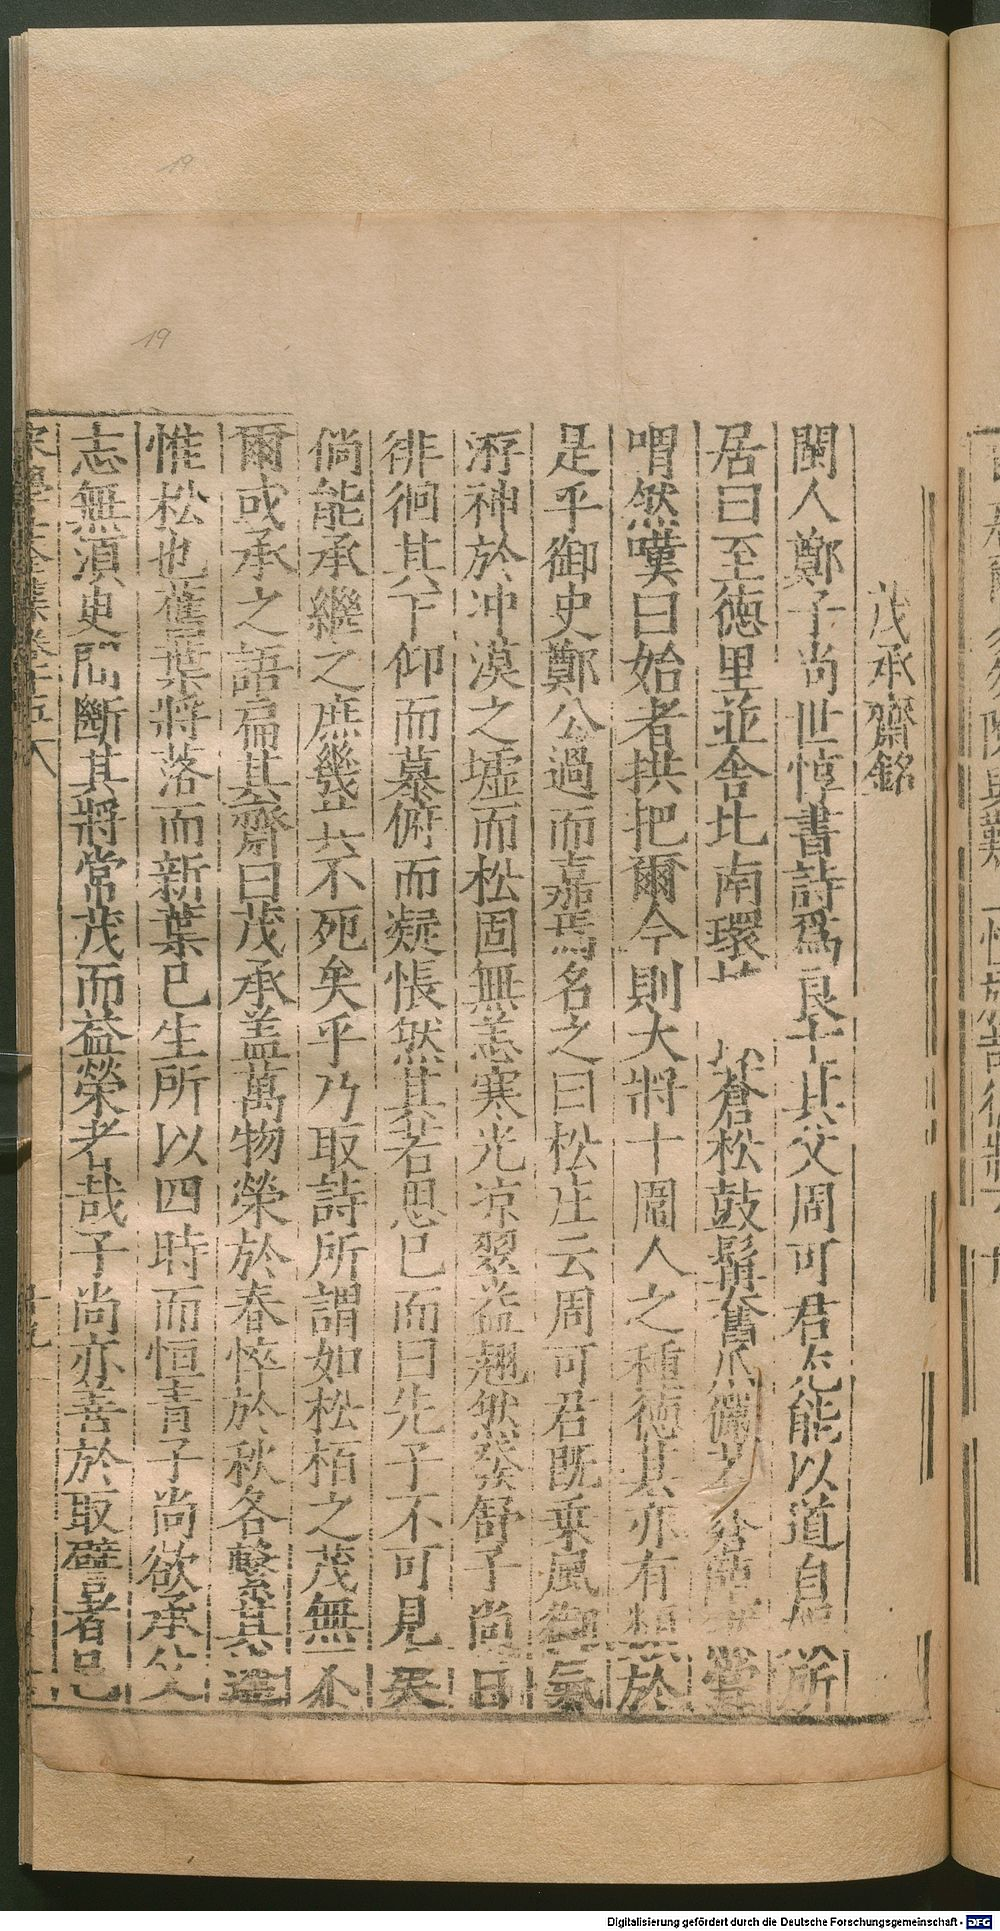 茂承齋銘
閩人鄭子尚世惇書詩爲良士其父周可君尤能以道自居所
居曰至德里並舍北南環 蒼松鼓鬣奮爪 蒼 堂
喟然嘆曰始者拱把爾今則大將十圍人之種德其亦有類於
是乎御史鄭公過而嘉焉名之曰松庄云周可君旣乗風御氣
游神於冲漠之墟而松固無恙寒光凉翠益翹然發舒子尚日
徘徊其下仰而慕俯而疑悵然其若思已而曰先子不可見矣
倘能承繼之庶幾其不死矣乎乃取詩所謂如松栢之茂無不
爾或承之語扁其齋曰茂承盖萬物榮於春悴於秋各繫其逢
惟松也舊葉將落而新葉已生所以四時而恒青子尚欲承父
志無須臾間斷其將常茂而益榮者哉子尚亦善於取譬者已
宋學士全集卷十五
19
19
Digitalisierung gefördert durch die Deutsche Forschungsgemeinschaft - DFG